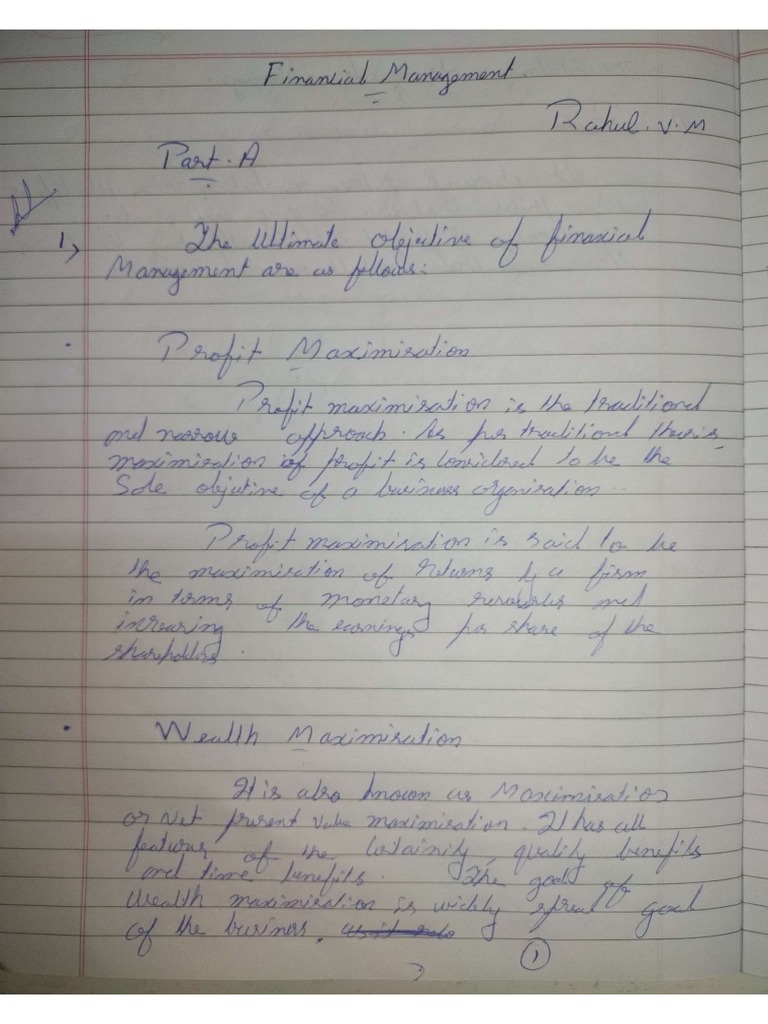 Financial Management.
Rahul. V. M
Part. A
1,
The Ultimate objective of financial
Management are as follows:
Profit Maximisation
Profit maximisation is the traditional
and narrow approach. As per traditional
maximisation of profit is considered to be the
Sole objective of a business organisation.
Profit maximisation is said to be
the maximisation of returns by a firm
in terms of monetary resources and
increasing the earnings per share of the
shareholders.
Wealth Maximisation
It is also known as Maximisation
or Net present value maximisation. It has all
features of the certainity, quality benefits
and time benefits. The goal of
Wealth maximisation is widely spread goal
of the business.
1